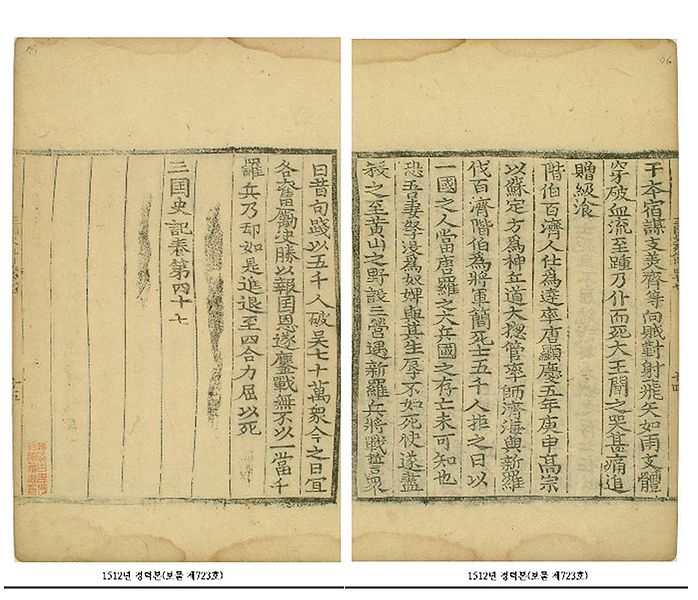 干夲宿謀支美齊等向賊對射飛矢如雨支體
穿破血流至踵乃仆而死大王聞之哭甚痛追
贈級湌
階伯百濟人仕為達率唐顯慶五年庚申髙宗
以蘇定方為神丘道大揔管率師濟海與新羅
伐百濟階伯為將軍簡死士五千人拒之曰以
一國之人當唐羅之大兵國之存亡未可知也
恐吾妻孥没為奴婢與其生辱不如死快遂盡
殺之至黄山之野設三營遇新羅兵將戰誓衆
曰昔句踐以五千人破吳七十萬衆今之日宜
各奮勵决勝以報囯恩遂鏖戰無不以一當千
羅兵乃却如是進退至四合力屈以死
三囯史記卷第四十七
1512년 정덕본(보물 제723호)
1512년 정덕본(보물 제723호)